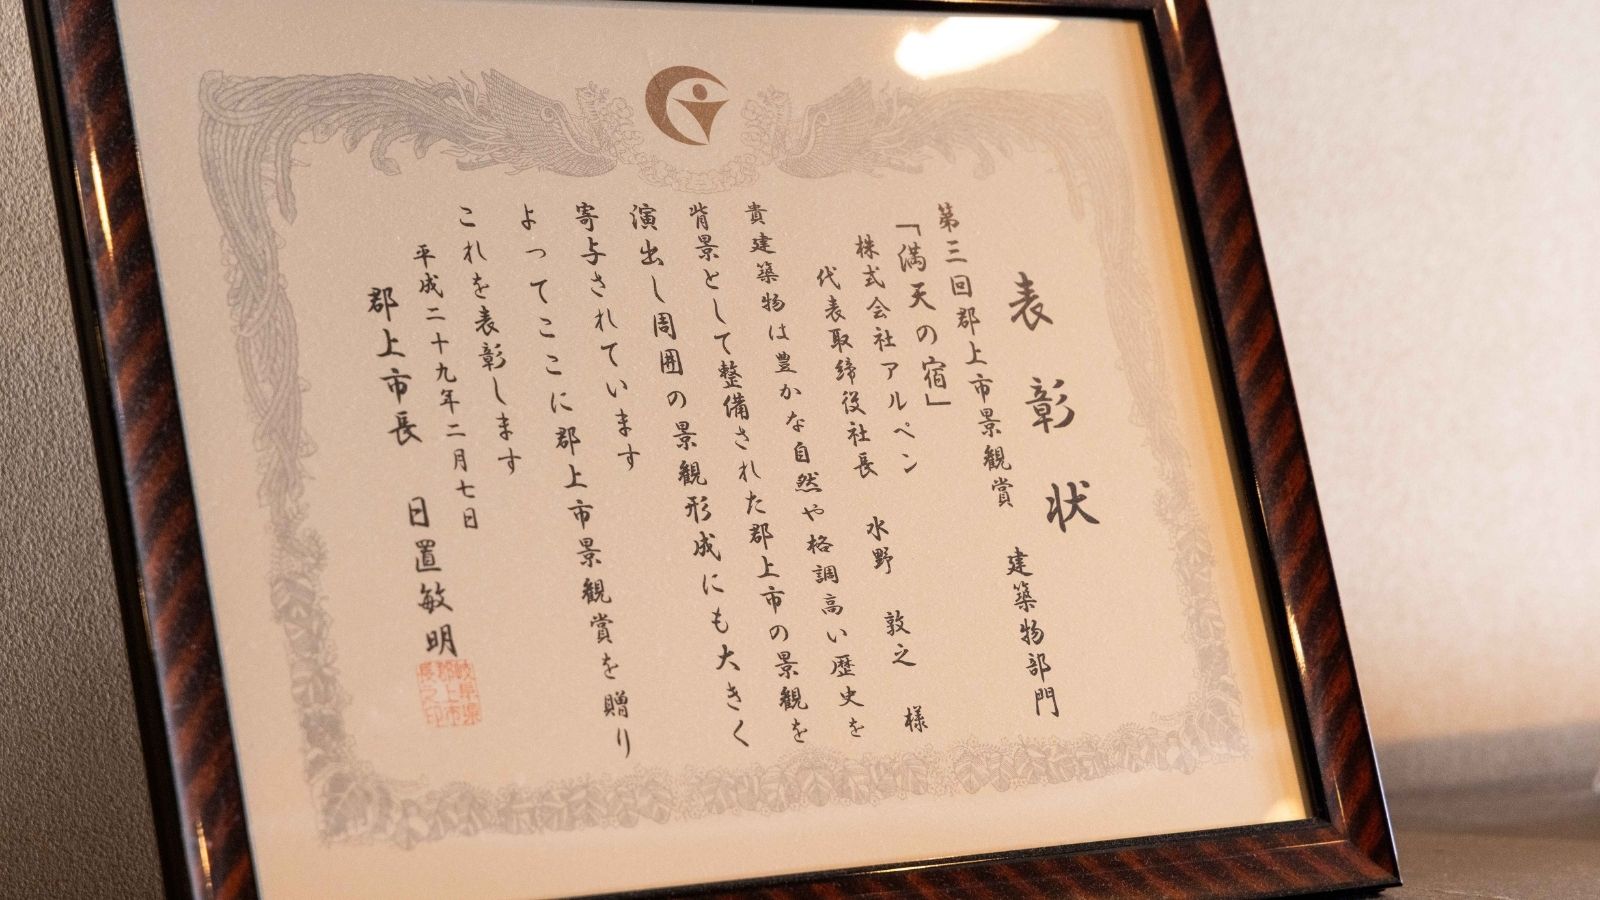 表彰状
第三回郡上市景観賞 建築物部門
「満天の宿」
株式会社アルペン
代表取締役社長 水野 敦之 様
貴建築物は豊かな自然や格調高い歴史を
背景として整備された郡上市の景観を
演出し周囲の景観形成にも大きく
寄与されています
よってここに郡上市景観賞を贈り
これを表彰します
平成二十九年二月七日
郡上市長 日置敏明
岐阜県
郡上市
長之印